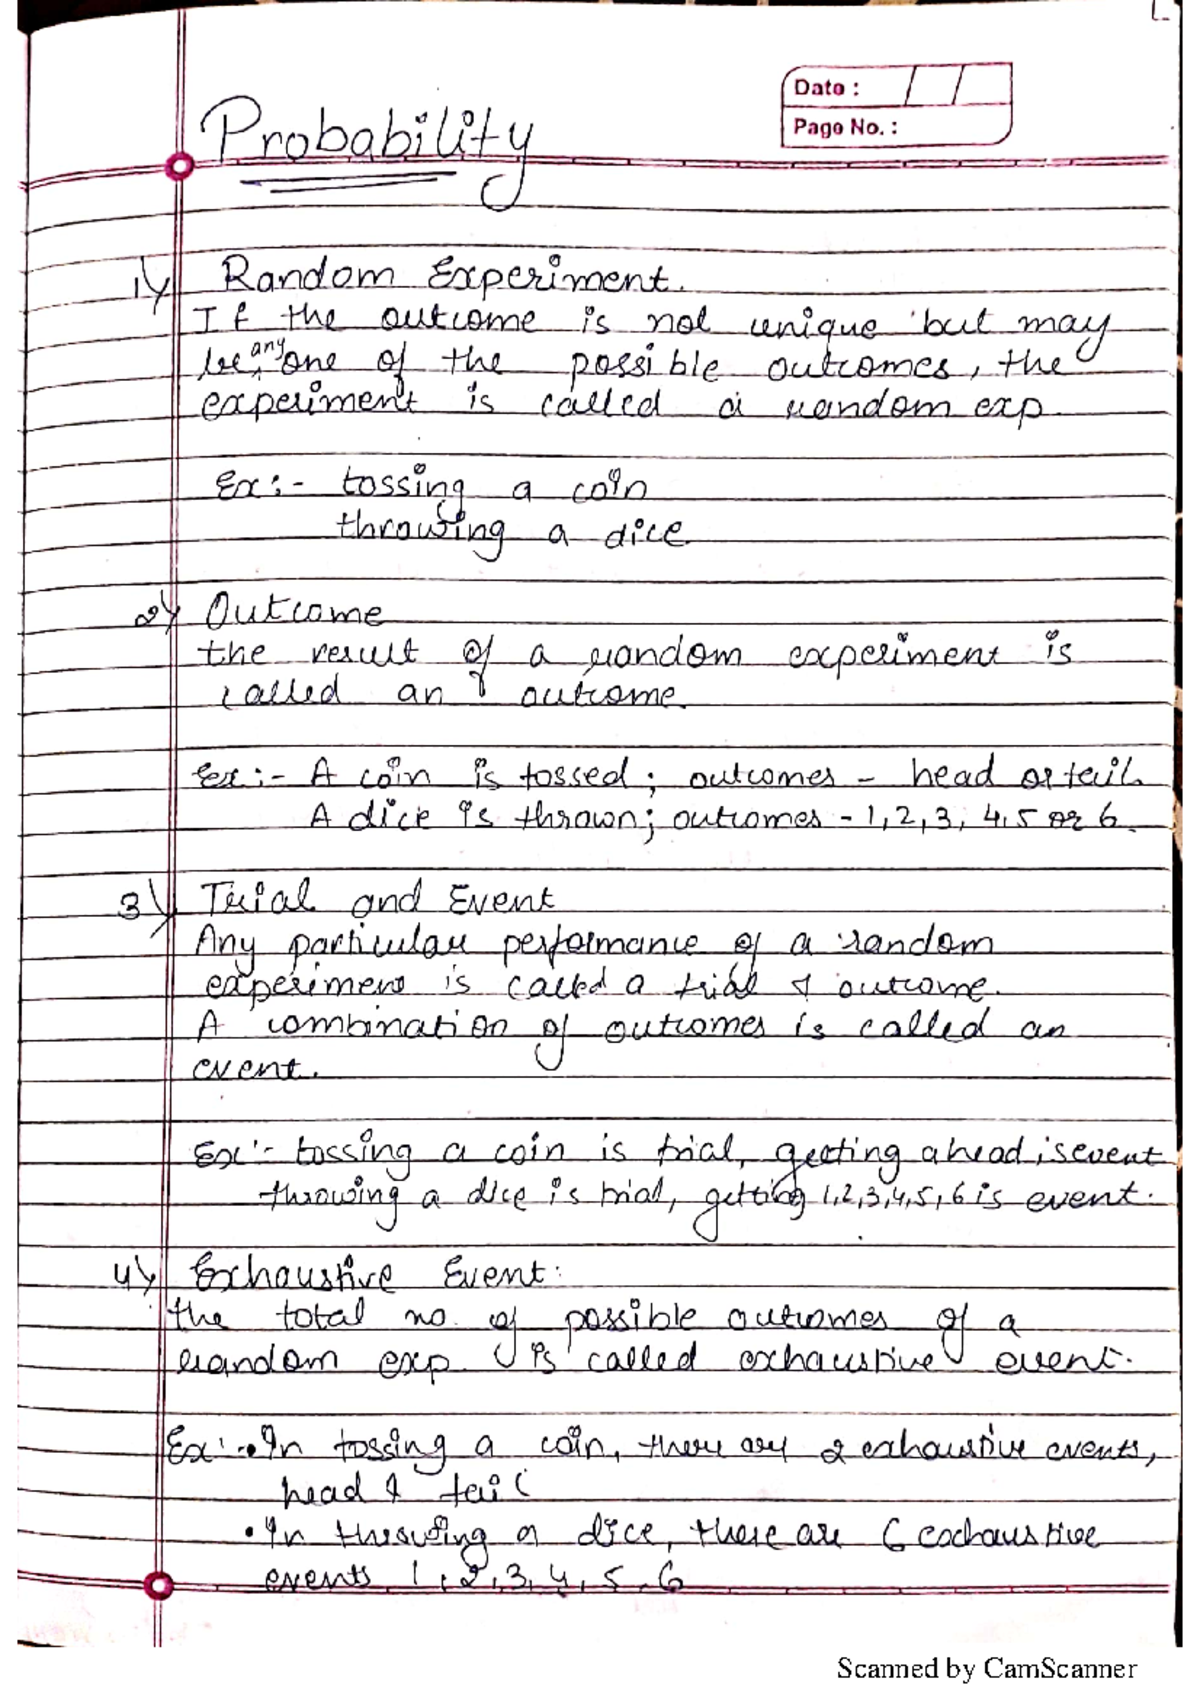 Date :
Page No. :
Probability
1) Random Experiment.
If the outcome is not unique but may
be any one of the possible outcomes, the
experiment is called a random exp.
Ex:- tossing a coin
throwing a dice
2) Outcome
the result of a random experiment is
called an outcome.
Ex:- A coin is tossed; outcomes - head or tail.
A dice is thrown; outcomes - 1,2,3, 4,5 or 6.
3) Trial and Event
Any particular performance of a random
experiment is called a trial & outcome.
A combination of outcomes is called an
event.
Ex:- tossing a coin is trial, getting a head is event
throwing a dice is trial, getting 1,2,3,4,5,6 is event.
4) Exhaustive Event:
the total no. of possible outcomes of a
random exp. is called exhaustive event.
Ex:- • In tossing a coin, there are 2 exhaustive events,
head & tail
• In throwing a dice, there are 6 exhaustive
events 1,2,3,4,5,6
Scanned by CamScanner